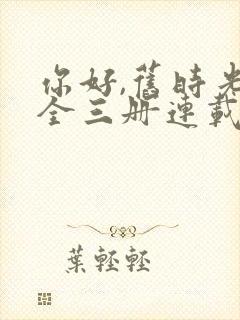 你好,舊時光
全三册連載
葉輕輕